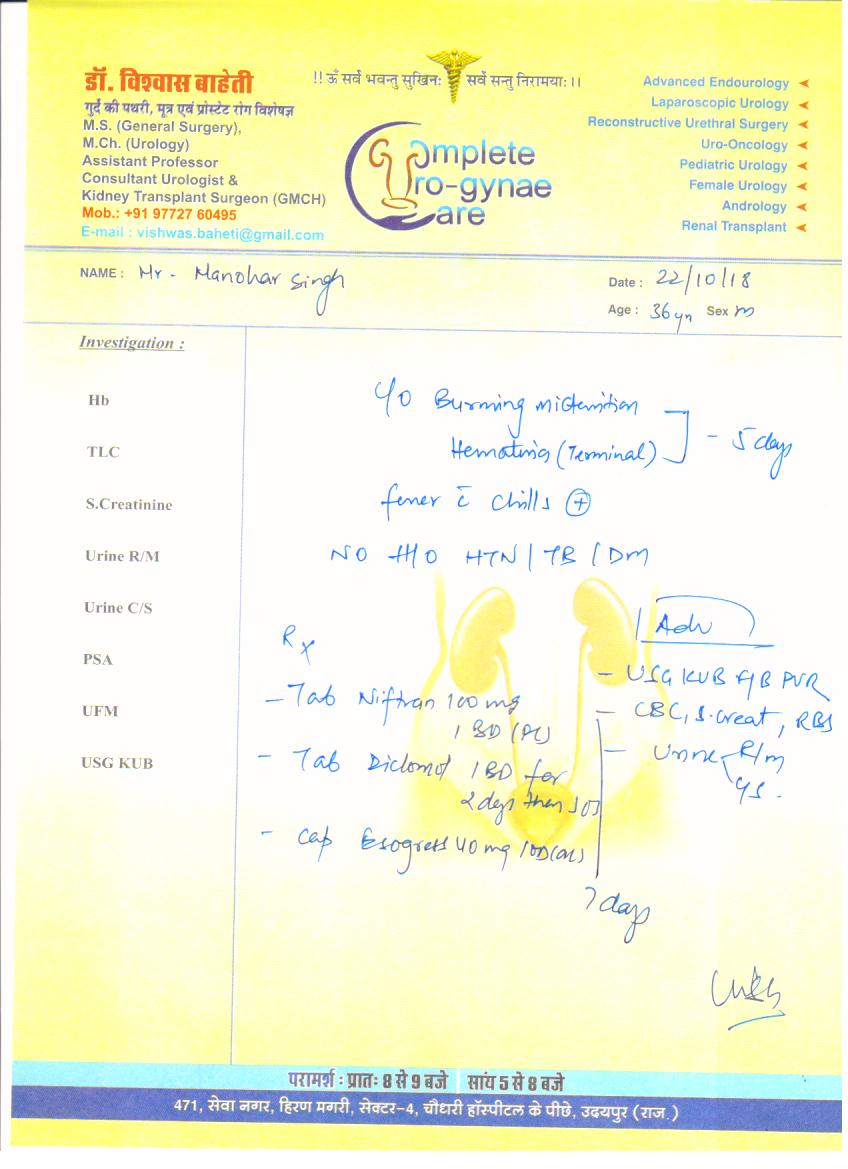 डॉ. विश्वास बाहेती
गुर्दे की पथरी, मूत्र एवं प्रोस्टेट रोग विशेषज्ञ
M.S. (General Surgery),
M.Ch. (Urology)
Assistant Professor
Consultant Urologist &
Kidney Transplant Surgeon (GMCH)
Mob.: +91 97727 60495
E-mail : vishwas.baheti@gmail.com
!! ॐ सर्वे भवन्तु सुखिनः सर्वे सन्तु निरामयाः ।।
Complete
Uro-gynae
Care
Advanced Endourology
Laparoscopic Urology
Reconstructive Urethral Surgery
Uro-Oncology
Pediatric Urology
Female Urology
Andrology
Renal Transplant
NAME : Mr. Manohar Singh
Date : 22/10/18
Age : 36 yr Sex m
Investigation :
Hb
TLC
S.Creatinine
Urine R/M
Urine C/S
PSA
UFM
USG KUB
C/o Burning micturition
Hematuria (Terminal) - 5 days
fever c̄ chills ⊕
NO H/O HTN / TB / DM
Rx
- Tab Niftran 100 mg
1 BD
- Tab Diclomol 1 BD for
2 days then SOS
- Cap Esogress 40 mg 1 OD
7 days
Adv
- USG KUB PVR
- CBC, S.Creat, RBS
- Urine R/m
C/S.
परामर्श : प्रातः 8 से 9 बजे सांय 5 से 8 बजे
471, सेवा नगर, हिरण मगरी, सेक्टर-4, चौधरी हॉस्पीटल के पीछे, उदयपुर (राज.)